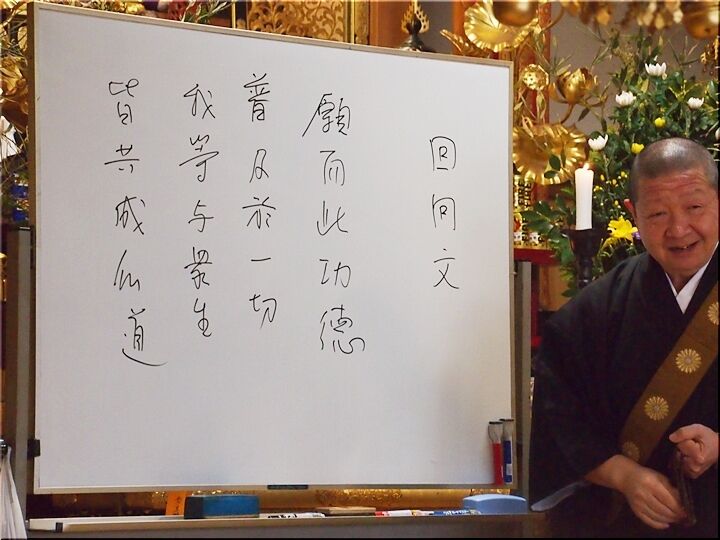 回向文
願而此功徳
普及於一切
我等与衆生
皆共成仏道